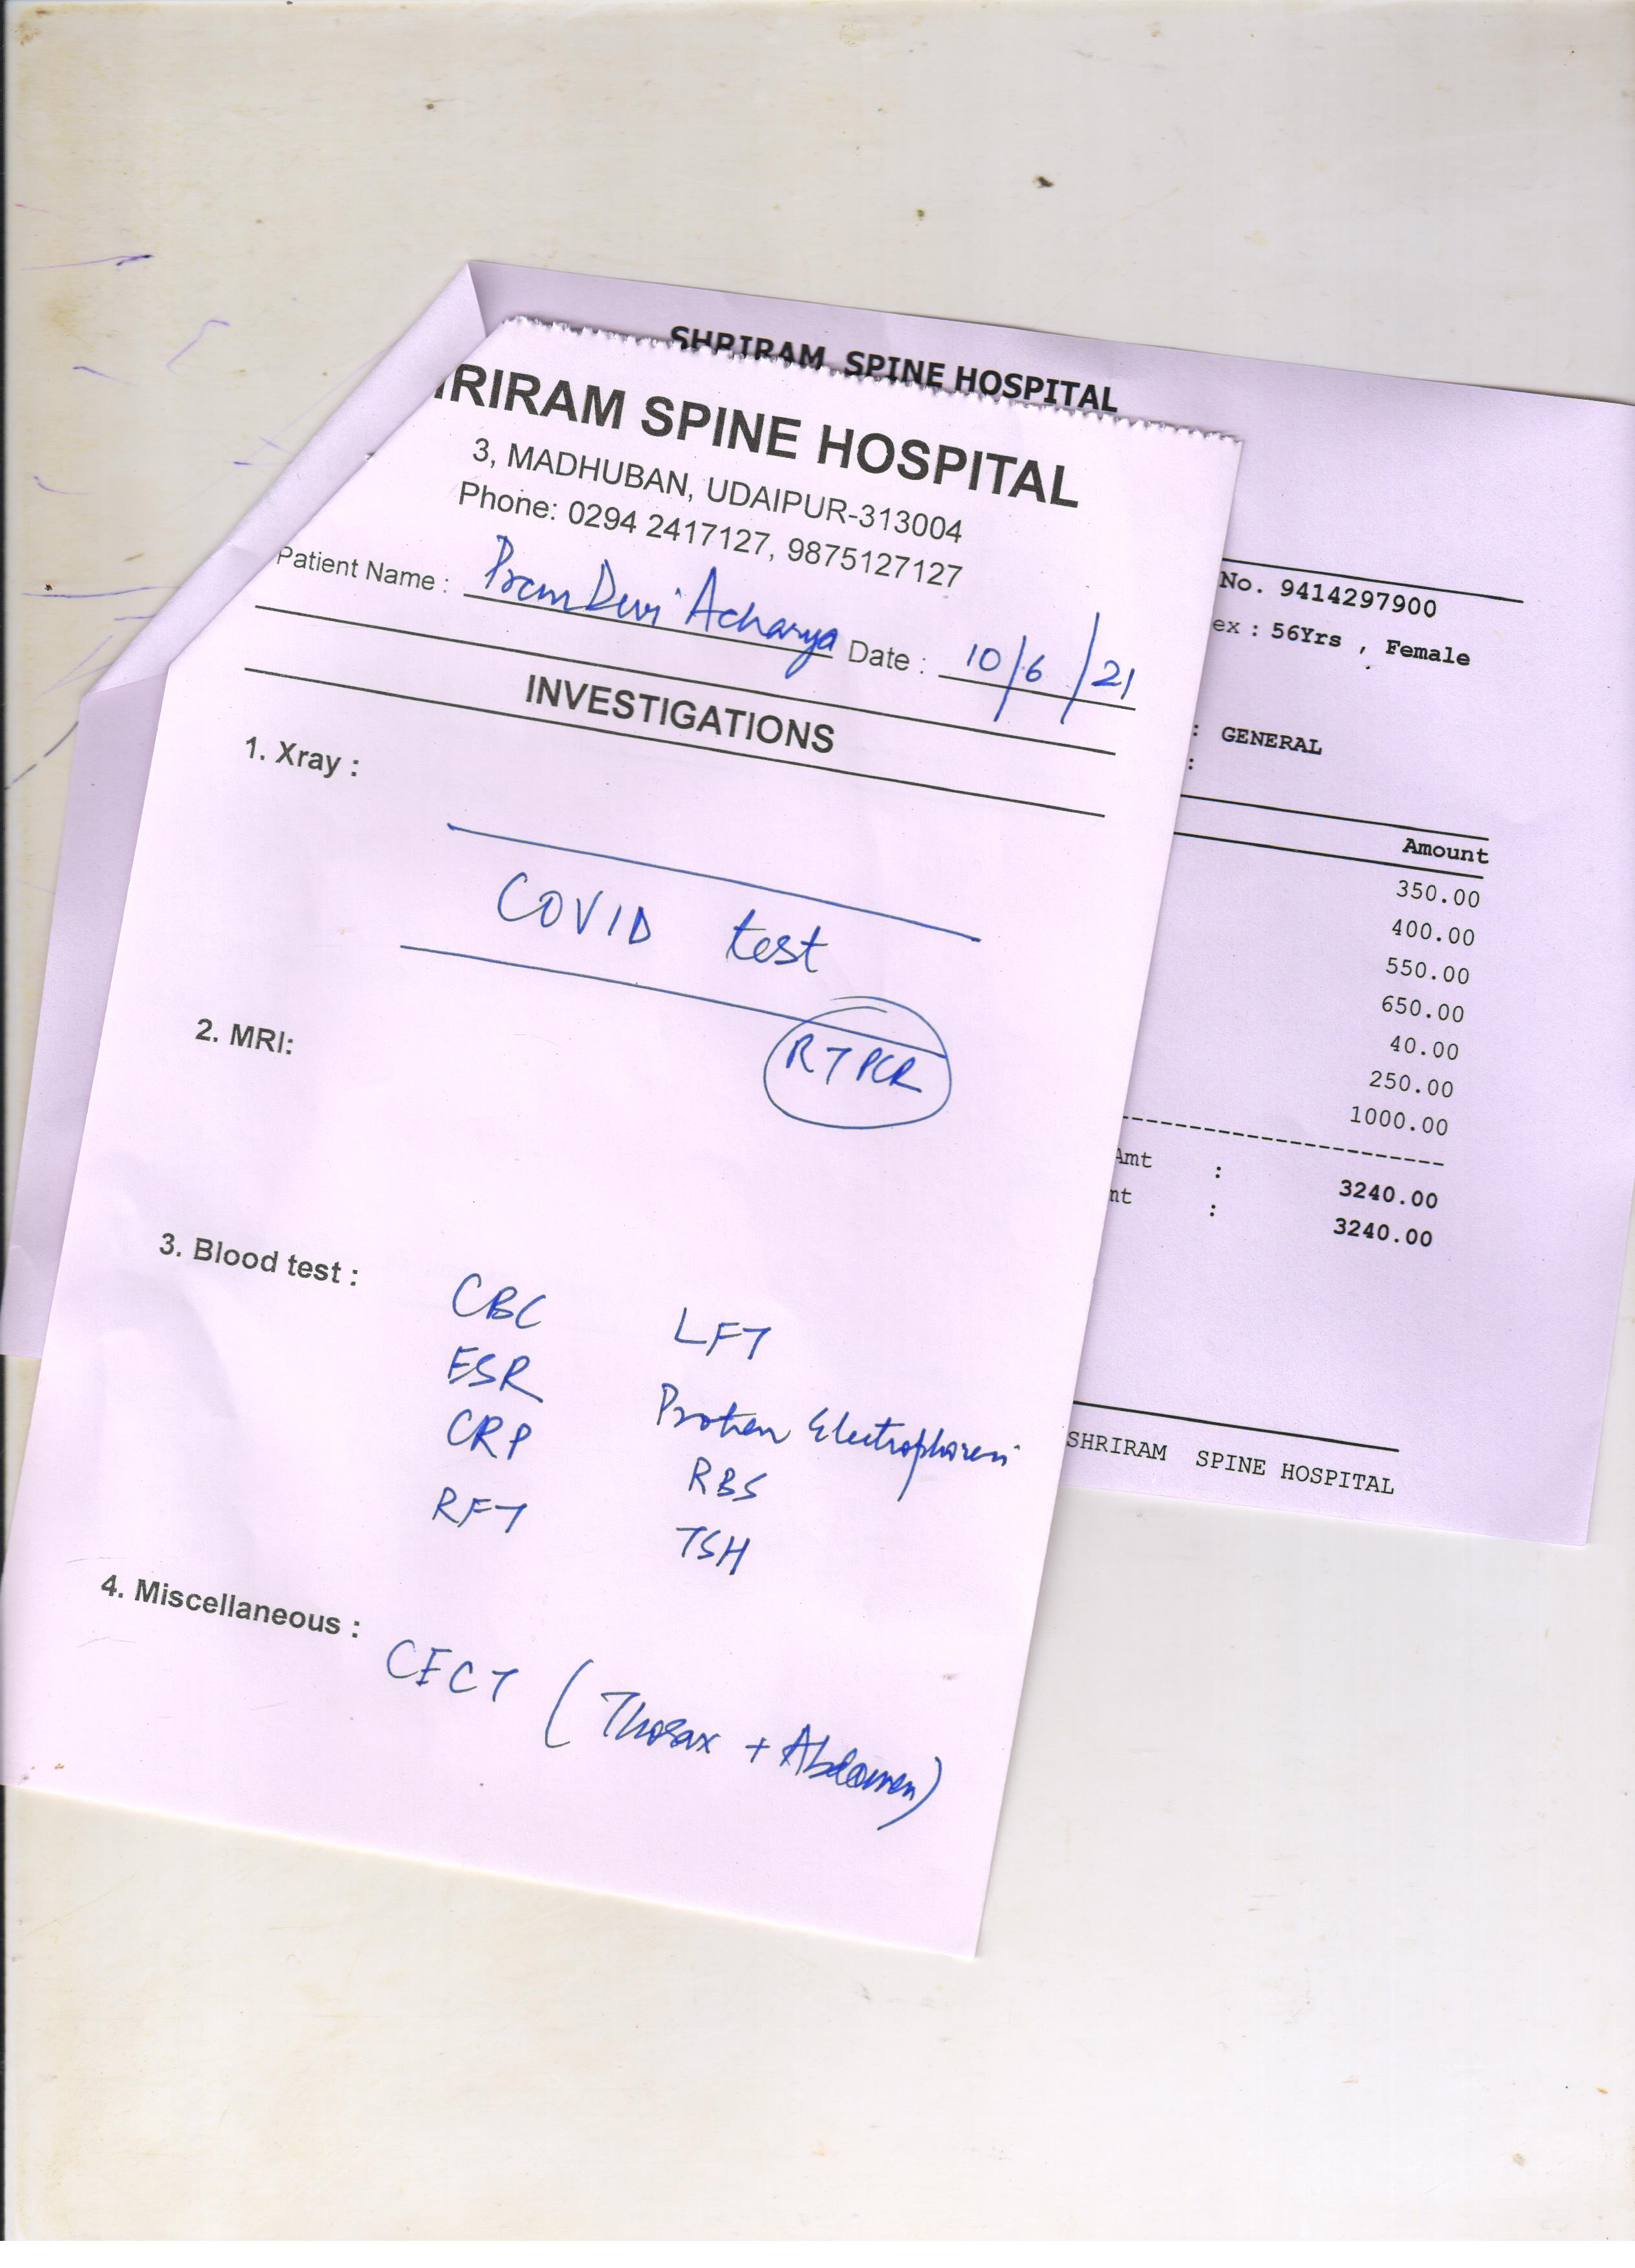 SHRIRAM SPINE HOSPITAL
RIRAM SPINE HOSPITAL
3, MADHUBAN, UDAIPUR-313004
Phone: 0294 2417127, 9875127127
Patient Name : Prem Devi Acharya Date : 10/6/21
INVESTIGATIONS
1. Xray :
COVID test
RTPCR
2. MRI:
3. Blood test :
CBC LFT
ESR Protien Electrophoresis
CRP RBS
RFT TSH
4. Miscellaneous :
CECT (Thorax + Abdomen)
No. 9414297900
ex : 56Yrs , Female
: GENERAL
:
Amount
350.00
400.00
550.00
650.00
40.00
250.00
1000.00
Amt : 3240.00
nt : 3240.00
SHRIRAM SPINE HOSPITAL